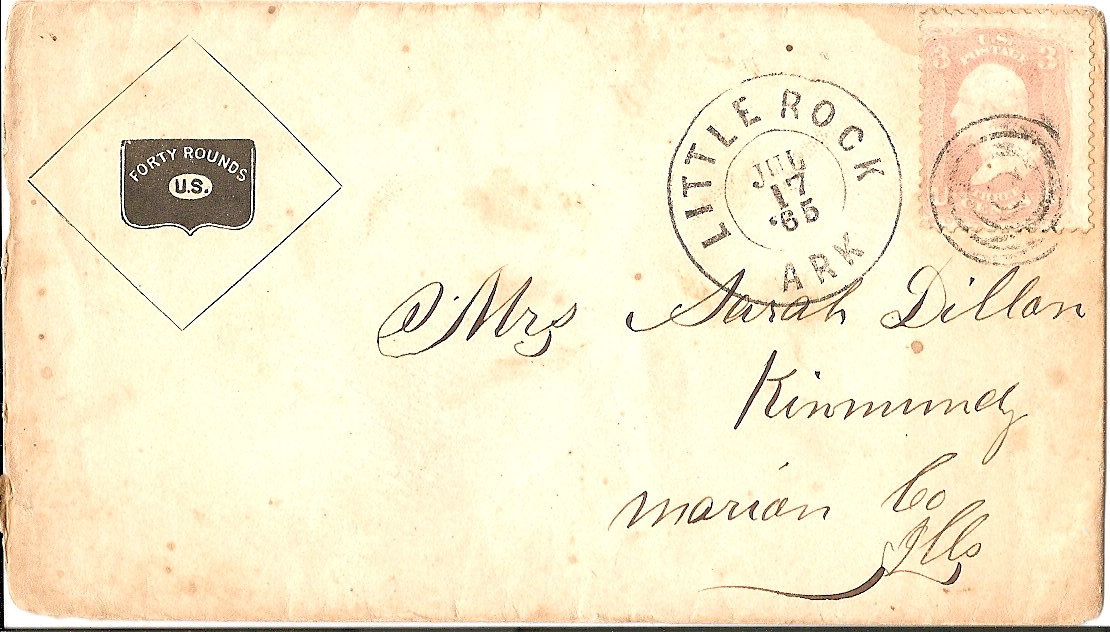 FORTY ROUNDS
U.S.
LITTLE ROCK
JUL
17
'65
ARK
U.S.
POSTAGE
3 3
Mrs Sarah Dillon
Kinmundy
Marion Co
Ills